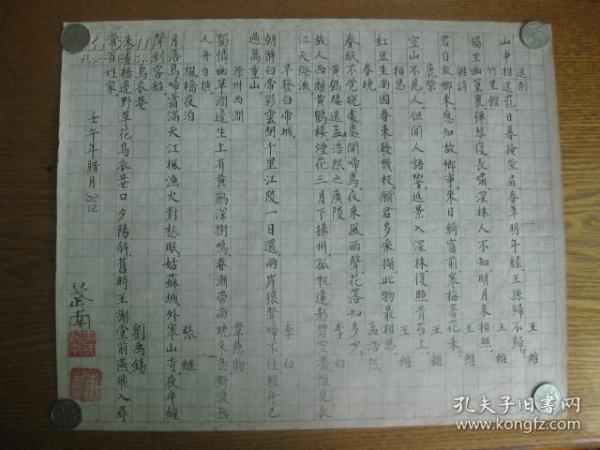 送别 王維
山中相送罷日暮掩柴扉春草明年綠王孫歸不歸
竹里館 王維
獨坐幽篁裏彈琴復長嘯深林人不知明月來相照
雜詩 王維
君自故鄉來應知故鄉事來日綺窗前寒梅著花未
鹿柴 王維
空山不見人但聞人語響返景入深林復照青苔上
相思 王維
紅豆生南國春來發幾枝願君多采擷此物最相思
春曉 孟浩然
春眠不覺曉處處聞啼鳥夜來風雨聲花落知多少
黃鶴樓送孟浩然之廣陵 李白
故人西辭黃鶴樓煙花三月下揚州孤帆遠影碧空盡惟見長
江天際流
早發白帝城 李白
朝辭白帝彩雲間千里江陵一日還兩岸猿聲啼不住輕舟已
過萬重山
滁州西澗 韋應物
獨憐幽草澗邊生上有黃鸝深樹鳴春潮帶雨晚來急野渡無
人舟自橫
楓橋夜泊 張繼
月落烏啼霜滿天江楓漁火對愁眠姑蘇城外寒山寺夜半鐘
聲到客船
烏衣巷 劉禹錫
朱雀橋邊野草花烏衣巷口夕陽斜舊時王謝堂前燕飛入尋
常百姓家
壬午年腊月
孔夫子旧书网